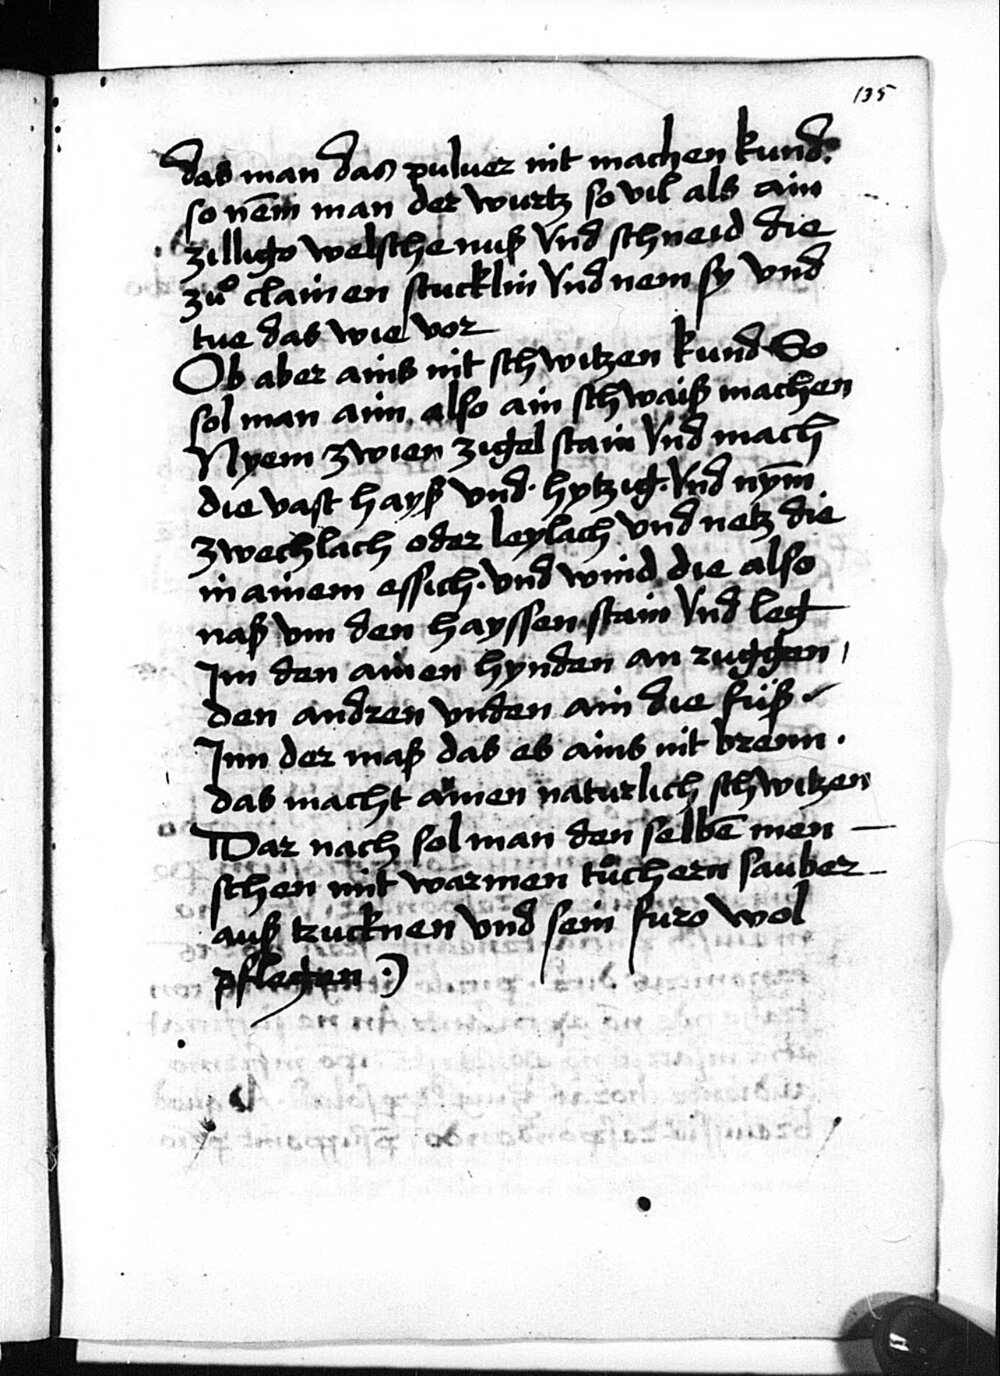 135
das man das puluer nit machen kund.
so nem̄ man der wurtz so vil als ain
zilligo welsche nuß Vnd schneid die
zuͦ clainen stucklin Vnd nem sy vnd
tue das wie vor
Ob aber ains nit schwitzen kund So
sol man aim also ain schwaiß machen
Nyem zwien zigel stain Vnd mach
die vast hayß vnd· hytzig· Vnd nym̄
zwechlach oder leylach vnd netz die
in ainem essich· vnd wind die also
naß vm den hayssen stain Vnd leg
Im den ainen hynden an ruggen
den andren vnden ain die füß
Inn der maß das es ains nit brenn ·
das macht ainen naturlich schwitzen
Dar nach sol man den selbē men
schen mit warmen tuͦchern sauber
auß trucknen vnd sein furo wol
pflegen